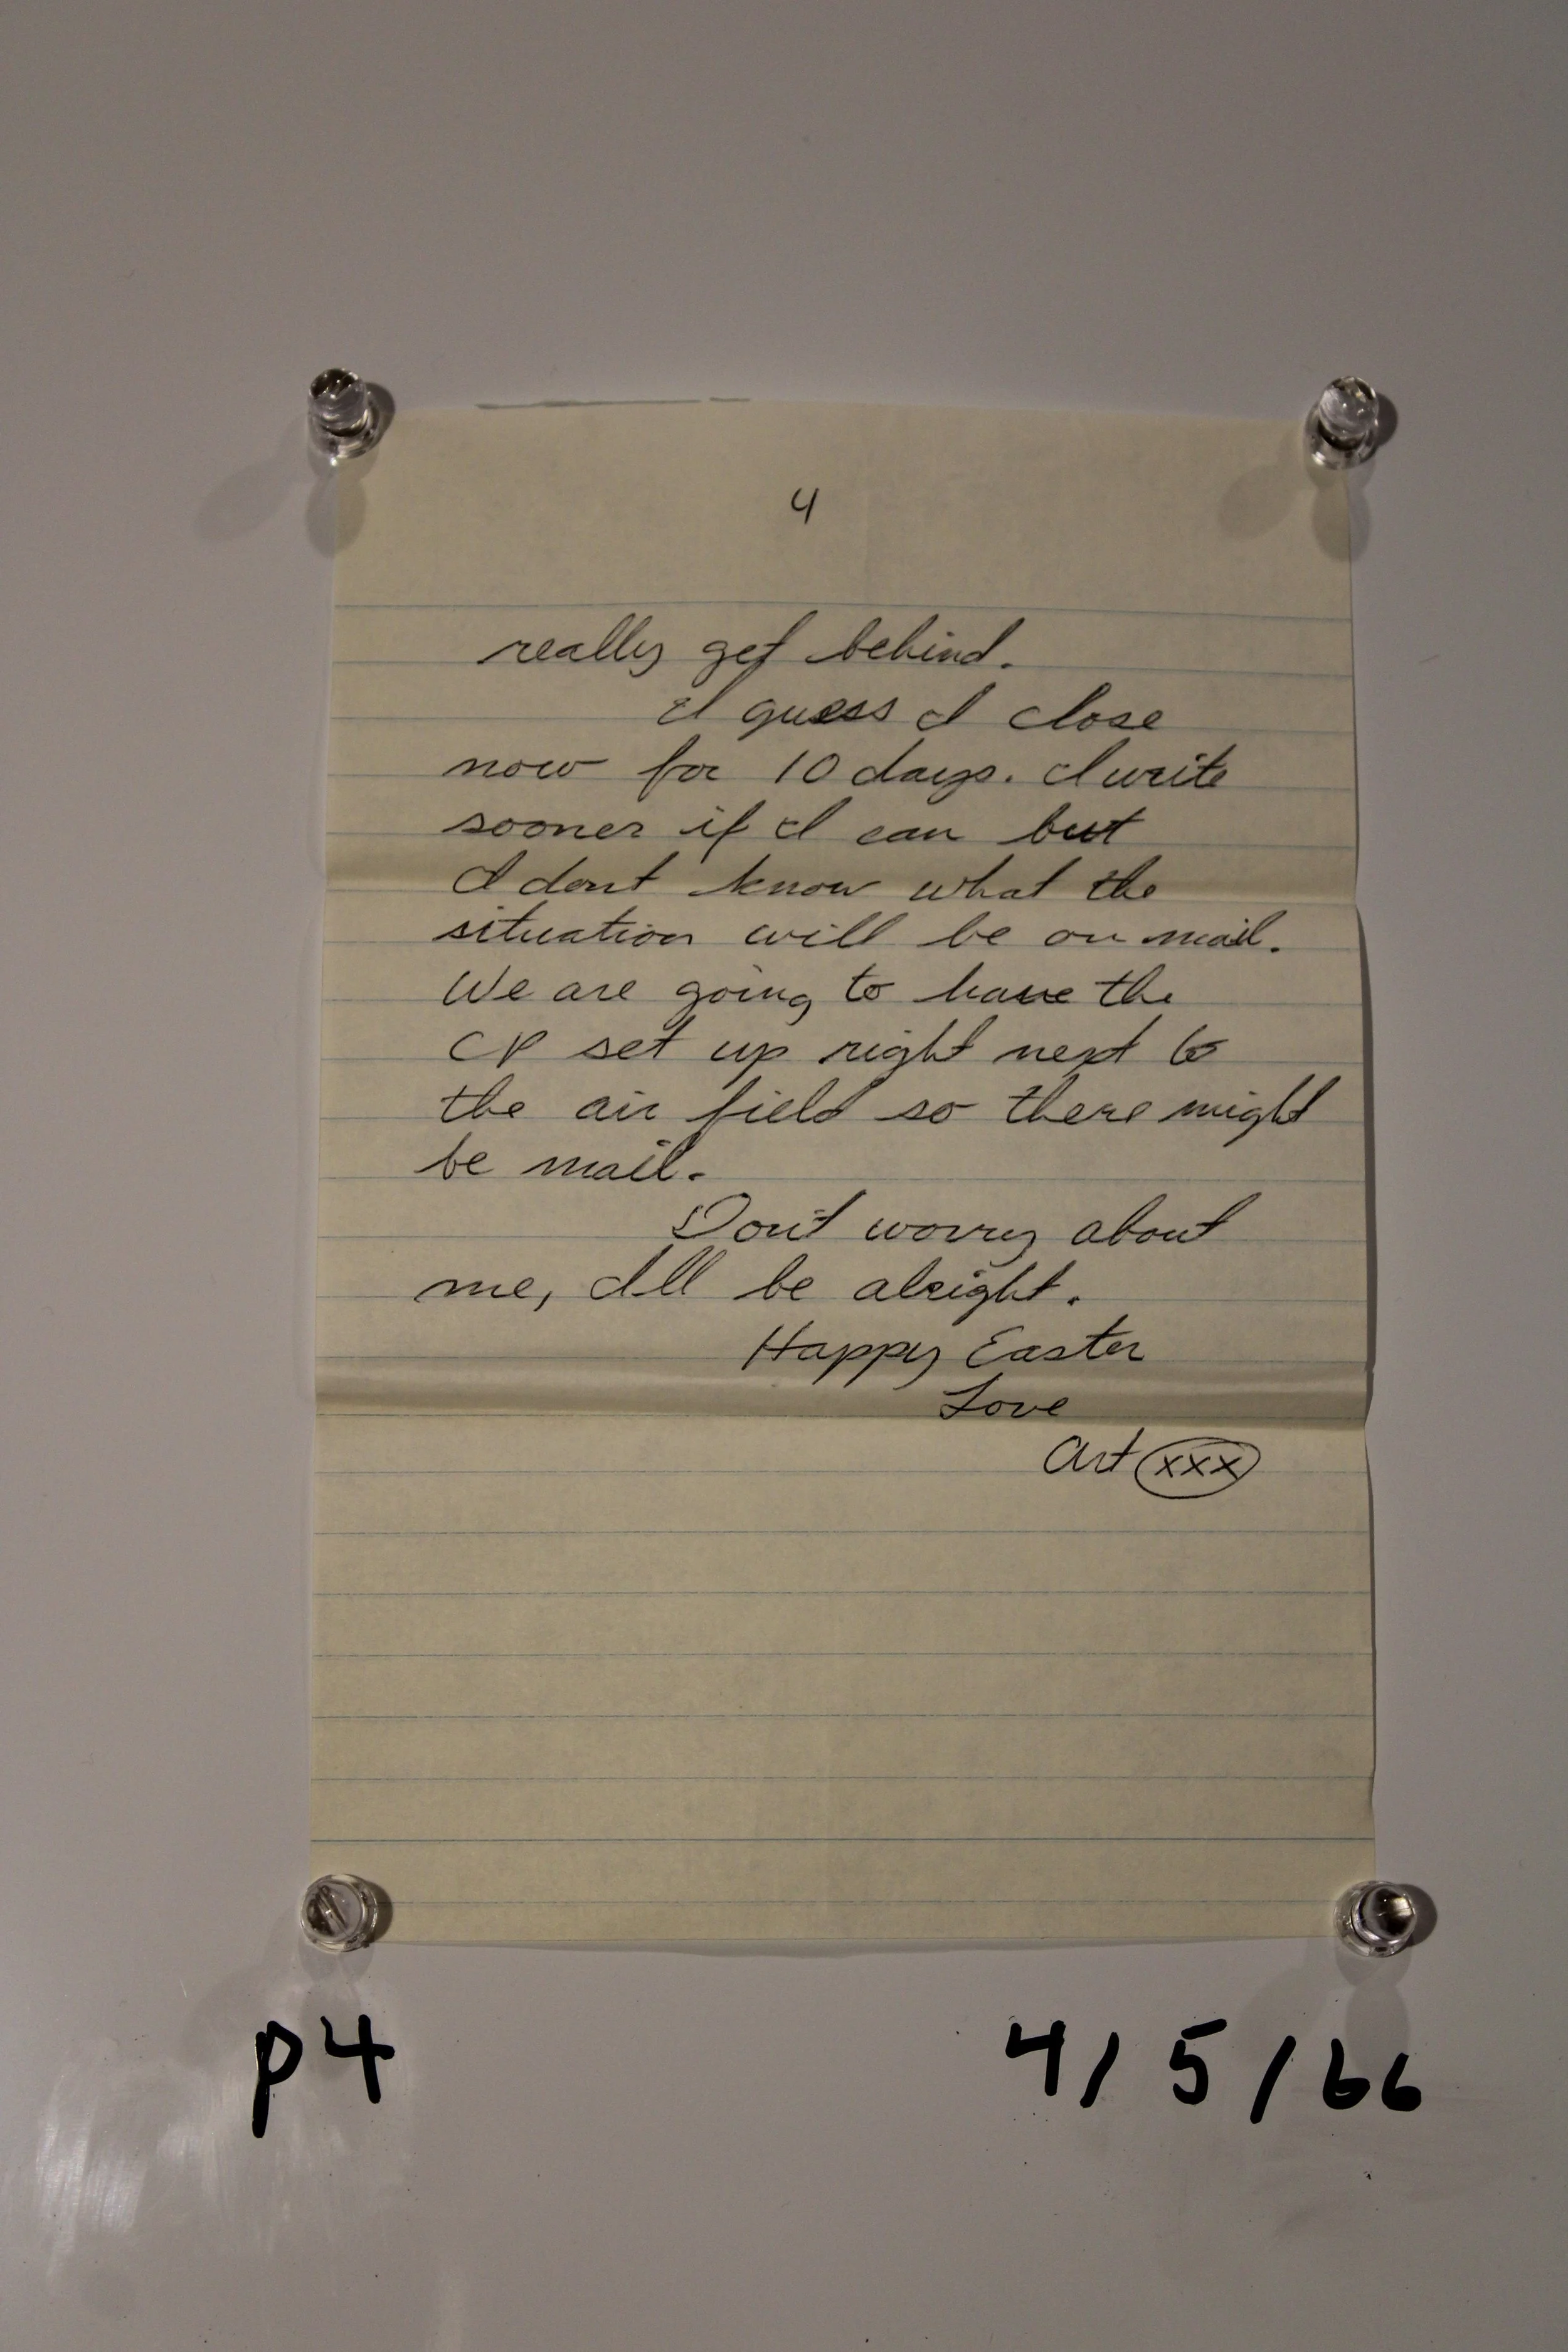 4
really get behind.
I guess I close
now for 10 days. I write
sooner if I can but
I dont know what the
situation will be on mail.
We are going to have the
CP set up right next to
the air field so there might
be mail.
Don't worry about
me, I'll be alright.
Happy Easter
Love
Art xxx
p4 4/5/66